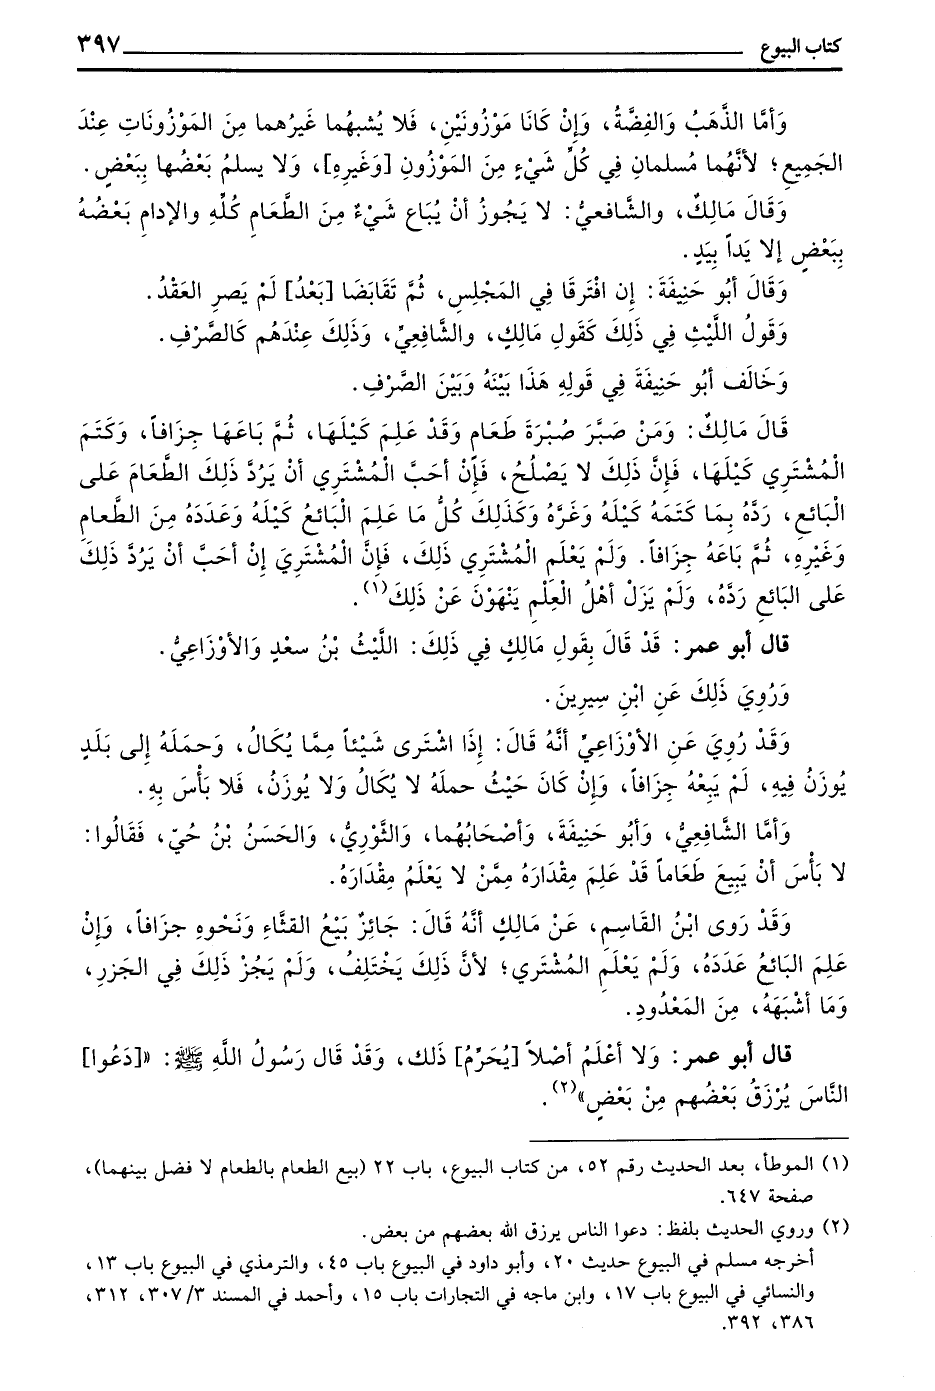 كتاب البيوع ٣٩٧
وَأمَّا الذَّهَبُ وَالفِضَّةُ، وَإِنْ كَانَا مَوْزُونَيْنِ، فَلا يُشبهُما غَيرُهما مِنَ المَوْزُونَاتِ عِنْدَ
الجَمِيعِ؛ لأنَّهُما مُسلمان فِي كُلِّ شَيْءٍ مِنَ المَوْزُونِ [وَغَيرِهِ]، وَلا يسلمُ بَعْضُها بِبَعْضٍ.
وَقَالَ مَالِكٌ، والشَّافعيُّ: لا يَجُوزُ أنْ يُبَاع شَيْءٌ مِنَ الطَّعَامِ كُلِّهِ والإدامِ بَعْضُهُ
بِبَعْضٍ إلا يَداً بِيَدٍ.
وَقَالَ أبُو حَنِيفَةَ: إن افْتَرقَا فِي المَجْلِسِ، ثُمَّ تَقَابَضَا [بَعْدُ] لَمْ يَصرِ العَقْدُ.
وَقَولُ اللَّيْثِ فِي ذَلِكَ كَقَولِ مَالِكٍ، والشَّافِعِيِّ، وَذَلِكَ عِنْدَهُم كَالصَّرْفِ.
وَخَالَف أبُو حَنِيفَةَ فِي قَولِهِ هَذَا بَيْنَهُ وَبَيْنَ الصَّرْفِ.
قَالَ مَالِكٌ: وَمَنْ صَبَّرَ صُبْرَةَ طَعَامٍ وَقَدْ عَلِمَ كَيْلَهَا، ثُمَّ بَاعَهَا جِزَافاً، وَكَتَمَ
الْمُشْتَرِي كَيْلَهَا، فَإنَّ ذَلِكَ لا يَصْلُحُ، فَإنْ أحَبَّ الْمُشْتَرِي أنْ يَرُدَّ ذَلِكَ الطَّعَامَ عَلى
الْبَائعِ، رَدَّهُ بِمَا كَتَمَهُ كَيْلَهُ وَغَرَّهُ وَكَذَلِكَ كُلُّ مَا عَلِمَ الْبَائعُ كَيْلَهُ وَعَدَدَهُ مِنَ الطَّعامِ
وَغَيْرِهِ، ثُمَّ بَاعَهُ جِزَافاً. وَلَمْ يَعْلَمِ الْمُشْتَرِي ذَلِكَ، فَإنَّ الْمُشْتَرِيَ إنْ أحَبَّ أنْ يَرُدَّ ذَلِكَ
عَلى البَائعِ رَدَّهُ، وَلَمْ يَزَلْ أهْلُ الْعِلْمِ يَنْهَوْنَ عَنْ ذَلِكَ(١).
قال أبو عمر: قَدْ قَالَ بِقَولِ مَالِكٍ فِي ذَلِكَ: اللَّيْثُ بْنُ سعْدٍ وَالأوْزَاعِيُّ.
وَرُوِيَ ذَلِكَ عَنِ ابْنِ سِيرِينَ.
وَقَدْ رُوِيَ عَنِ الأوْزَاعِيِّ أنَّهُ قَالَ: إذَا اشْتَرى شَيْئاً مِمَّا يُكَالُ، وَحمَلَهُ إلى بَلَدٍ
يُوزَنُ فِيهِ، لَمْ يَبِعْهُ جِزَافاً، وَإنْ كَانَ حَيْثُ حملَهُ لا يُكَالُ وَلا يُوزَنُ، فَلا بَأْسَ بِهِ.
وَأمَّا الشَّافِعِيُّ، وَأبُو حَنِيفَةَ، وَأصْحَابُهُما، وَالثَّوْرِيُّ، وَالحَسَنُ بْنُ حُيّ، فَقَالُوا:
لا بَأْسَ أنْ يَبِيعَ طَعَاماً قَدْ عَلِمَ مِقْدَارَهُ مِمَّنْ لا يَعْلَمُ مِقْدَارَهُ.
وَقَدْ رَوى ابْنُ القَاسِمِ، عَنْ مَالِكٍ أنَّهُ قَالَ: جَائِزٌ بَيْعُ القثَّاءِ وَنَحْوِهِ جزَافاً، وَإنْ
عَلِمَ البَائعُ عَدَدَهُ، وَلَمْ يَعْلَمِ المُشْتَري؛ لأنَّ ذَلِكَ يَخْتَلِفُ، وَلَمْ يَجُزْ ذَلِكَ فِي الجَزرِ،
وَمَا أشْبَهَهُ، مِنَ المَعْدُودِ.
قال أبو عمر: وَلا أعْلَمُ أصْلاً [يُحَرِّمُ] ذَلك، وَقَدْ قَال رَسُولُ اللَّهِ ﷺ: «[دَعُوا]
النَّاسَ يُرْزَقُ بَعْضُهم مِنْ بَعْضٍ»(٢).
(١) الموطأ، بعد الحديث رقم ٥٢، من كتاب البيوع، باب ٢٢ (بيع الطعام بالطعام لا فضل بينهما)،
صفحة ٦٤٧.
(٢) وروي الحديث بلفظ: دعوا الناس يرزق الله بعضهم من بعض.
أخرجه مسلم في البيوع حديث ٢٠، وأبو داود في البيوع باب ٤٥، والترمذي في البيوع باب ١٣،
والنسائي في البيوع باب ١٧، وابن ماجه في التجارات باب ١٥، وأحمد في المسند ٣٠٧/٣، ٣١٢،
٣٨٦، ٣٩٢.